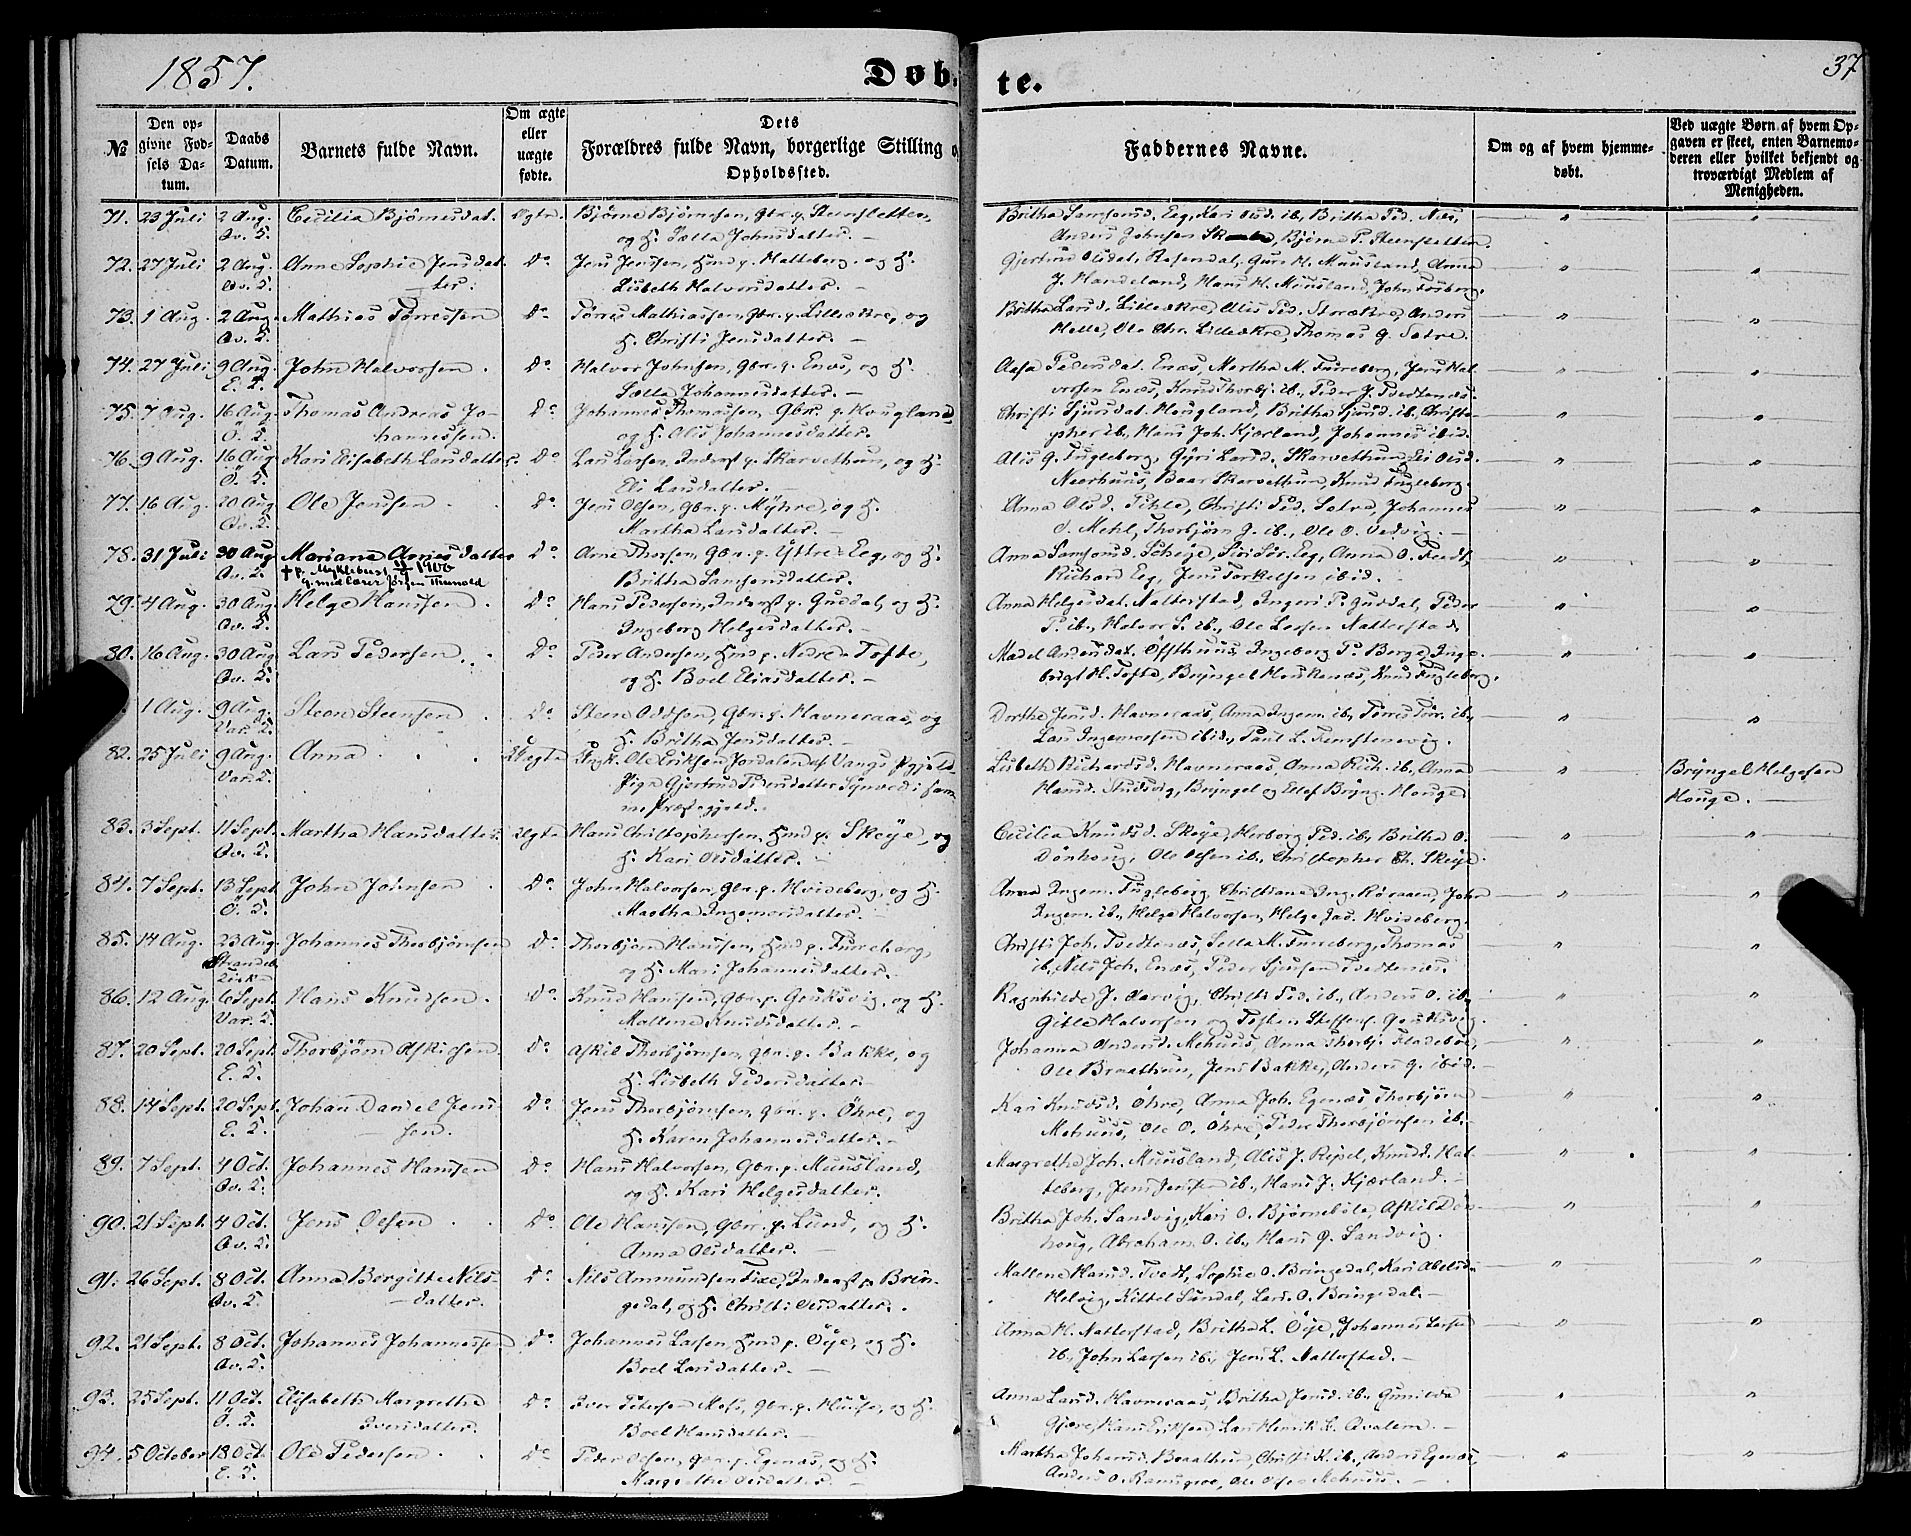 1857.
Døb-
te.
37
№
Den op-
givne Fød-
sels Da-
tum.
Daabs
Datum.
Barnets fulde Navn.
Om ægte
eller
uægte
fødte.
Dets
Forældres fulde Navn, borgerlige Stilling o
Opholdssted.
Faddernes Navne.
Om og af hvem hjemme-
døbt.
Ved uægte Børn af hvem Op-
gaven er skeet, enten Barnemo-
deren eller hvilket bekjendt og
troværdigt Medlem af
Menigheden.
71. 23 Juli 2 Aug. Cecilia Bjørnesdat. Ægte. Bjørne Bjørnsen, Gbr. p. Steensletten,
Qv. K. og H. Sælla Johnsdatter. —
Britha Samsonsd. Eeg, Kari Olsd. ib., Britha Ped. Nes,
Anders Johnsen, Bjørne P. Steensletten.
72. 27 Juli 2 Aug. Anne Sophie Jensdat- Do Jens Jenssen, Hmd p. Hatteberg, og H.
Qv. K. ter. Lisbeth Halvorsdatter. —
Gjertrud Olsdat. Rosendal, Guri H. Muusland, Anna
J. Handeland, Hans H. Muusland, John Fosberg.
73. 1 Aug. 2 Aug. Mathias Tørressen Do Tørres Mathiassen, Gbr. p. Lilleækre, og
Qv. K. H. Christi Jensdatter. —
Britha Larsd. Lilleækre, Alis Ped. Storækre, Anders
Helle, Ole Chr. Lilleækre, Thomas G. Sætre.
74. 27 Juli 9 Aug. John Halvorsen Do Halvor Johnsen, Gbr. p. Enæs, og H.
E. K. Sælla Johannesdatter. —
Aasa Pedersdat. Enæs, Martha M. Fureberg, Jens Hal-
vorsen Enæs, Knud Thorbj. ib., Peder J. Tvedtenæs.
75. 7 Aug. 16 Aug. Thomas Andreas Jo- Do Johannes Thomassen, Gbr. p. Hougland,
Ö. K. hannessen. og H. Alis Johannesdatter.
Christi Sjursdat. Hougland, Britha Sjursd. ib., Christo-
pher ib., Hans Joh. Kjærland, Johannes ibid.
76. 9 Aug. 16 Aug. Kari Elisabeth Larsdatter. Do Lars Larsen, Inderst p. Skarvethun, og H.
Ö. K. Eli Larsdatter. —
Alis G. Fugleberg, Gyri Larsd. Skarvethun, Eli Olsd.
Neerhuus, Baar Skarvethun, Knud Fugleberg.
77. 16 Aug. 20 Aug. Ole Jenssen Do Jens Olsen, Gbr. p. Myhre, og H.
Qv. K. Martha Larsdatter. —
Anna Olsd. Tehle, Christi Ped. Sætre, Johannes
J. Mehl, Thorbjørn J. ib., Ole O. Vedvig. —
78. 31 Juli 30 Aug. Mariane Arnesdatter Do Arne Thorsen, Gbr. p. Yttre Eeg, og H.
Qv. K. † p. Myklebust 1906 Britha Samsonsdatter. —
g. med lærer Jørgen Thunold
Anna Samsonsd. Skeye, Siri Sør. Eeg, Anna O. Tvedt,
Richard Eeg, Jens Torkelsen ibid. —
79. 4 Aug. 30 Aug. Helge Hanssen Do Hans Pedersen, Inderst p. Guddal, og H.
Qv. K. Ingeborg Helgesdatter. —
Anna Helgesdat. Natterstad, Ingeri P. Guddal, Peder
P. ib., Halvor S. ib., Ole Larsen Natterstad.
80. 16 Aug. 30 Aug. Lars Pedersen Do Peder Andersen, Hmd p. Nedre Tofte,
Qv. K. og H. Boel Eliasdatter. —
Madel Andersdat. Öffthuus, Ingeborg P. Berge, Inge-
brigt H. Tofte, Brÿngel Houkenæs, Knud Fugleberg.
1 Aug. 9 Aug. Steen Steensen Do Steen Oddsen, Gbr. p. Havneraas, og
Var. K. H. Britha Jensdatter. —
Dorthe Jensd. Havneraas, Anna Ingem. ib., Tørres Tør. ib.,
Lars Ingemorsen ibid., Paul L. Femstenevig.
82. 25 Juli 9 Aug. Anna Uægte Ungk. Ole Eriksen Jordalen af Vangs Pgjeld
Var. K. Pige Gjertrud Pedersdatter Sÿnved i sam-
me Præstegjeld. —
Lisbeth Richardsd. Havneraas, Anna Rich. ib., Anna
Hansd. Hudsvig, Brÿngel og Ellef Brÿng. Houge.
Brÿngel Helgesen
Houge. —
83. 3 Sept. 11 Sept. Martha Hansdatter. Ægte Hans Christophersen, Hmd p. Skeÿe, og
Qv. K. H. Kari Olsdatter. —
Cecilia Knudsd. Skeÿe, Herborg Ped. ib., Britha O.
Dönhoug, Ole Olsen ib., Christopher Ch. Skeÿe.
84. 7 Sept. 13 Sept. John Johnsen Do John Halvorsen, Gbr. p. Hvideberg, og H.
Ö. K. Martha Ingemorsdatter.
Anna Ingem. Fugleberg, Christiana Ing. Röraaen, John
Ingem. ib., Helge Halvorsen, Helge Jac. Hvideberg.
85. 14 Aug. 23 Aug. Johannes Thorbjørnsen Do Thorbjørn Hanssen, Hmd p. Fureberg,
Strandeb. og H. Mari Johannesdatter. —
Kirke
Christi Joh. Tvedtenæs, Sella M. Fureberg, Thomas
ib., Nils Joh. Enæs, Peder Sjursen Tvedtenæs.
86. 12 Aug. 6 Sept. Hans Knudsen Do Knud Hanssen, Gbr. p. Gjuksvig, og H.
Var. K. Mallene Knudsdatter. —
Ragnhilde J. Aarvig, Christi Ped. ib., Anders O. ib.
Gitle Halvorsen og Tosten Steffens. Gjuksvig.
87. 20 Sept. 20 Sept. Thorbjørn Askilsen Do Askil Thorbjørnsen, Gbr. p. Bakke, og
E. K. H. Lisbeth Pedersdatter. —
Johanna Andersd. Mehuus, Anna Thorbj. Fladebøe,
Ole Braathun, Jens Bakke, Anders G. ibid. —
88. 14 Sept. 20 Sept. Johan Daniel Jens- Do Jens Thorbjørnsen, Gbr. p. Öhre, og
E. K. sen. H. Karen Johannesdatter. —
Kari Knudsd. Öhre, Anna Joh. Egenæs, Thorbjörn
Mehuus, Ole O. Öhre, Peder Thorbjørnsen ib. —
89. 7 Sept. 4 Oct. Johannes Hanssen Do Hans Halvorsen, Gbr. p. Muusland,
Qv. K. og H. Kari Helgesdatter.
Margretha Joh. Muusland, Alis J. Ripel, Knud J. Hat-
teberg, Jens Jenssen ib., Hans J. Kjærland. —
90. 21 Sept. 4 Oct. Jens Olsen Do Ole Hanssen, Gbr. p. Lund, og H.
Qv. K. Anna Olsdatter. —
Britha Joh. Sandvig, Kari O. Bjørnebøle, Askil Dön-
houg, Abraham O. ib., Hans G. Sandvig.
91. 26 Sept. 8 Oct. Anna Borgitte Nils- Do Nils Ammundsen Fixe, Inderst p. Brin-
Qv. K. datter. gedal, og H. Christi Olsdatter.
Mallene Hansd. Tvedt, Sophie O. Bringedal, Kari Abelsd.
Helvig, Kittel Sundal, Lars O. Bringedal. —
92. 21 Sept. 8 Oct. Johannes Johannessen Do Johannes Larsen, Hmd p. Öÿe, og H.
Qv. K. Boel Larsdatter. —
Anna H. Natterstad, Britha L. Öÿe, Johannes Larsen
ib., John Larsen ib., Jens L. Natterstad. —
93. 25 Sept. 11 Oct. Elisabeth Margretha Do Iver Petersen Moss, Gbr. p. Huuse, og H.
Ö. K. Iversdatter. Boel Hansdatter. —
Anna Larsd. Havneraas, Britha Jensd. ib., Gunilda
Gjøre, Hans Eriksen, Lars Henrik L. Qvalem. —
94. 5 October 18 Oct. Ole Pedersen Do Peder Olsen, Gbr. p. Egenæs, og H.
E. K. Margretha Olsdatter. —
Martha Johansd. Braathun, Christi K. ib., Anders Egenæs,
Anders O. Ramsgroe, Ole Olsen Mehuus. —